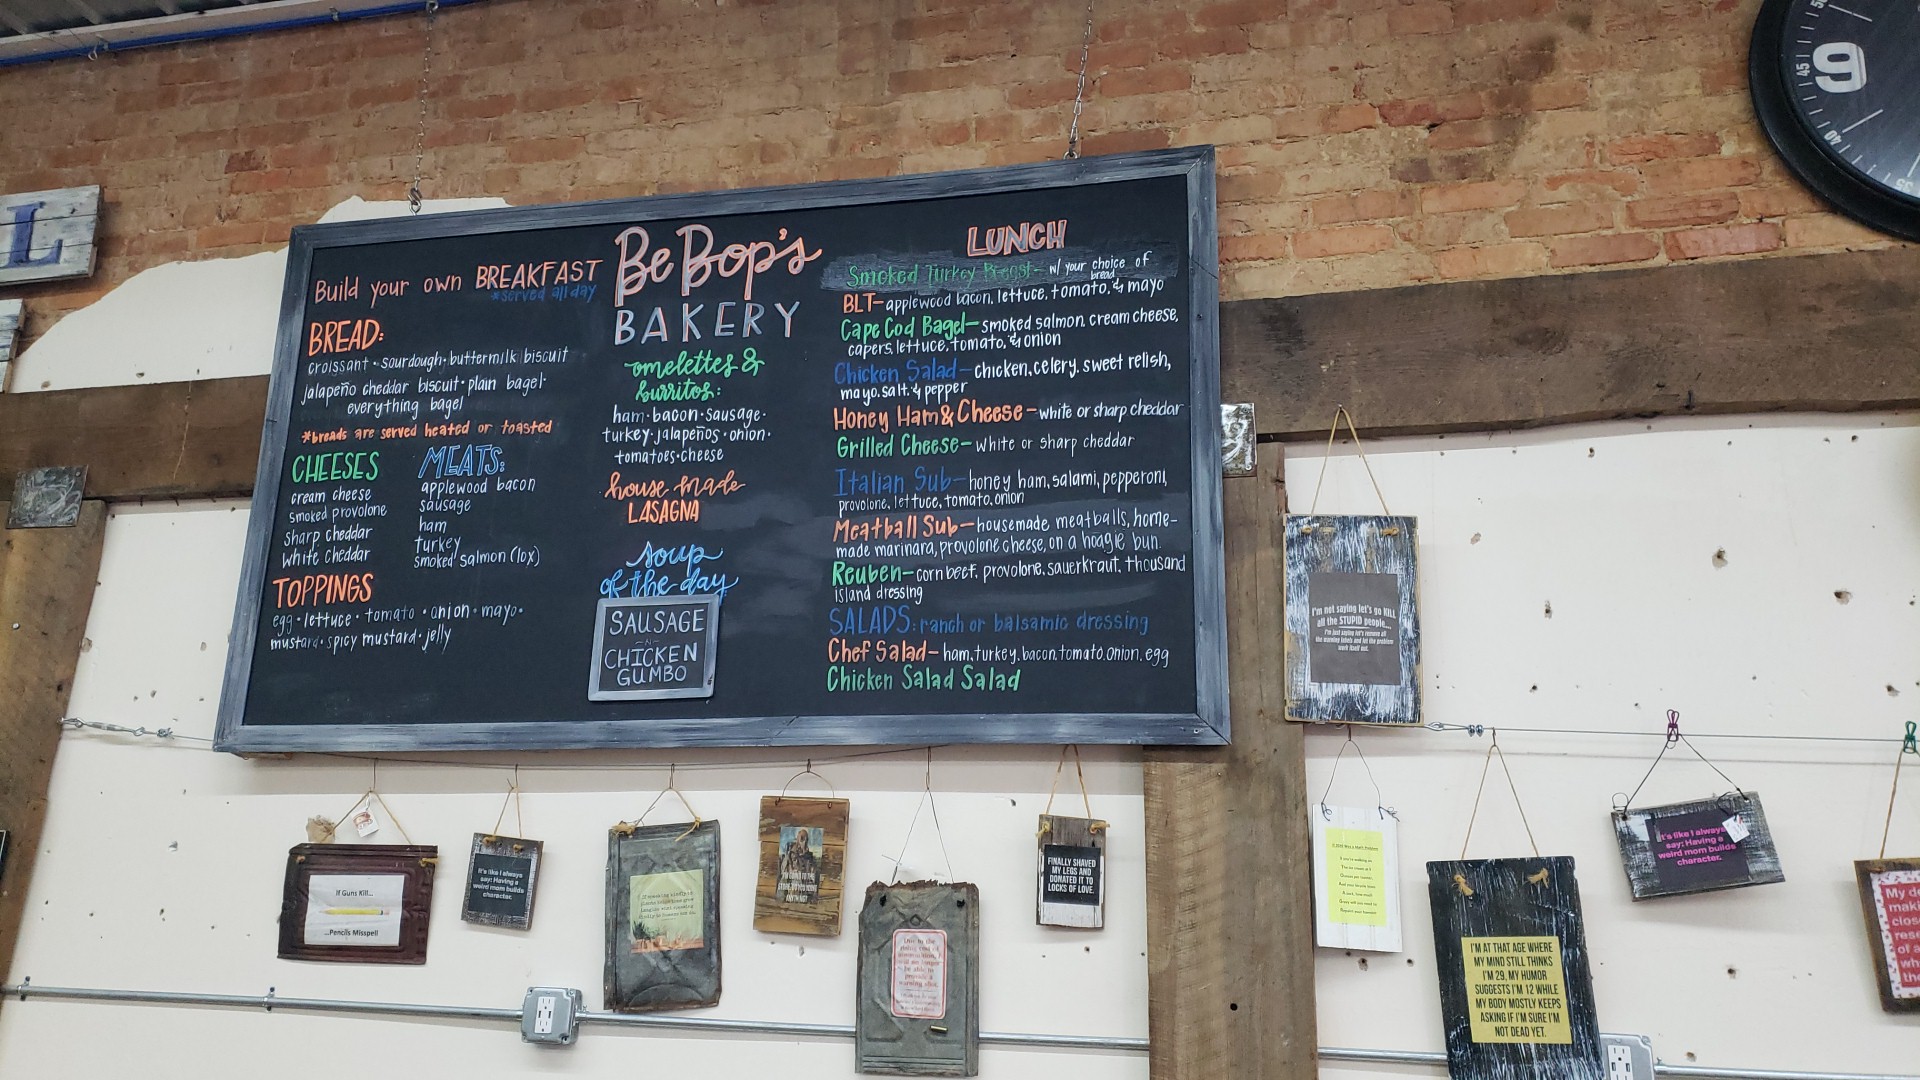 L
Build your own BREAKFAST
*served all day
BREAD:
croissant · sourdough · buttermilk biscuit
jalapeño cheddar biscuit · plain bagel ·
everything bagel
*breads are served heated or toasted
CHEESES
cream cheese
smoked provolone
sharp cheddar
white cheddar
MEATS:
applewood bacon
sausage
ham
turkey
smoked salmon (lox)
TOPPINGS
egg · lettuce · tomato · onion · mayo ·
mustard · spicy mustard · jelly
BeBop's
BAKERY
omelettes &
burritos:
ham · bacon · sausage ·
turkey · jalapeños · onion ·
tomatoes · cheese
house made
LASAGNA
soup
of the day
SAUSAGE
-N-
CHICKEN
GUMBO
LUNCH
Smoked Turkey Breast- w/ your choice of
bread
BLT- applewood bacon, lettuce, tomato, & mayo
Cape Cod Bagel- smoked salmon, cream cheese,
capers, lettuce, tomato, & onion
Chicken Salad- chicken, celery, sweet relish,
mayo, salt, & pepper
Honey Ham & Cheese- white or sharp cheddar
Grilled Cheese- white or sharp cheddar
Italian Sub- honey ham, salami, pepperoni,
provolone, lettuce, tomato, onion
Meatball Sub- housemade meatballs, home-
made marinara, provolone cheese, on a hoagie bun
Reuben- corn beef, provolone, sauerkraut, thousand
island dressing
SALADS: ranch or balsamic dressing
Chef Salad- ham, turkey, bacon, tomato, onion, egg
Chicken Salad Salad
9
45
40
35
I'm not saying let's go KILL
all the STUPID people...
I'm just saying let's remove all
the warning labels and let the problem
work itself out.
If Guns Kill...
...Pencils Misspell
It's like I always
say: Having a
weird mom builds
character.
FINALLY SHAVED
MY LEGS AND
DONATED IT TO
LOCKS OF LOVE.
Due to the
rising cost of
ammunition, I
will no longer
be able to
provide a
warning shot.
It's like I always
say: Having a
weird mom builds
character.
I'M AT THAT AGE WHERE
MY MIND STILL THINKS
I'M 29, MY HUMOR
SUGGESTS I'M 12 WHILE
MY BODY MOSTLY KEEPS
ASKING IF I'M SURE I'M
NOT DEAD YET.
My de
maki
clos
rese
of a
wh
the